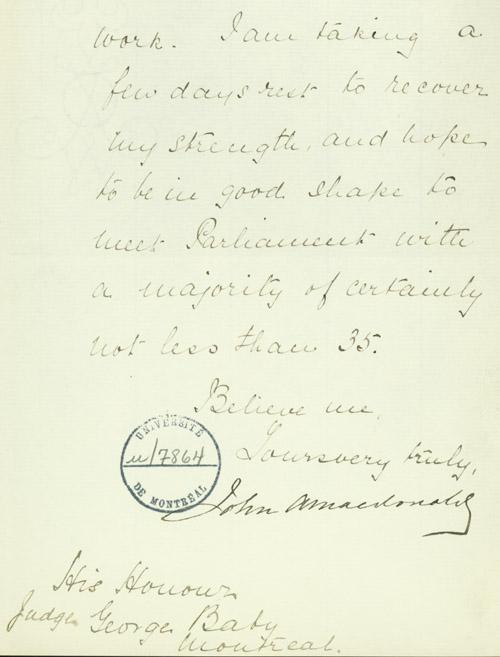 work. I am taking a
few days rest to recover
my strength, and hope
to be in good shape to
meet Parliament with
a majority of certainly
not less than 35.
Believe me,
Yours very truly,
John A Macdonald
UNIVERSITÉ
u/7864
DE MONTRÉAL
His Honour
Judge George Baby
Montreal.